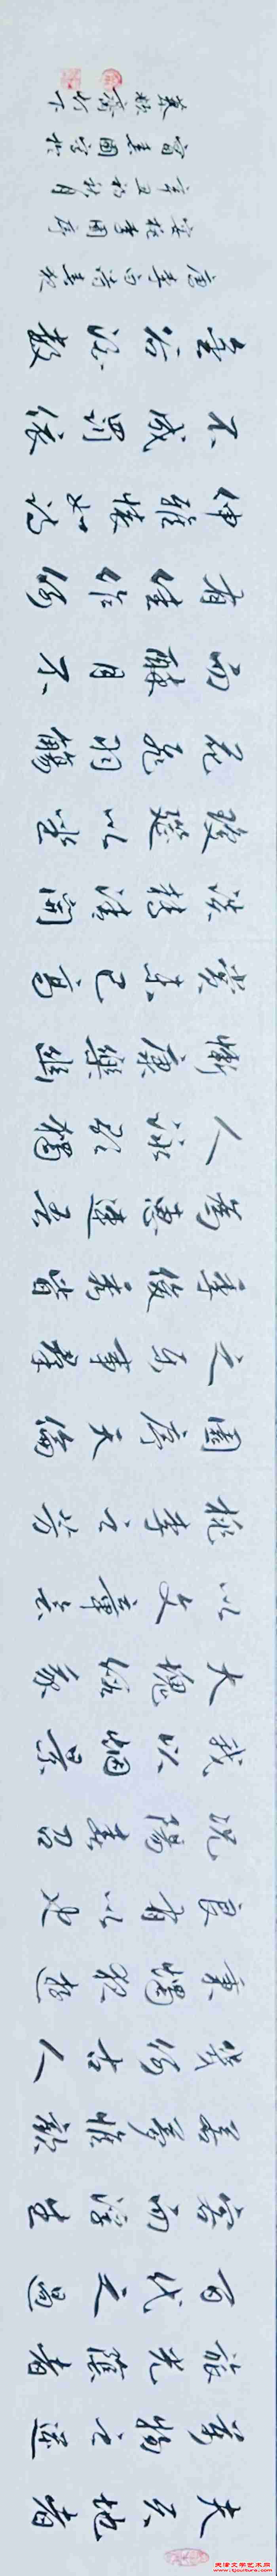 夫天地者
萬物之逆
旅光陰者
百代之過
客而浮生
若夢惟歡
幾何古人
秉燭夜遊
良有以也
況陽春召
我以烟景
大塊假我
以文章會
桃李之芳
園序天倫
之樂事群
季俊秀皆
為惠連吾
人詠歌獨
慚康樂幽
賞未已高
談轉清開
瓊筵以坐
花飛羽觴
而醉月不
有佳作何
伸雅懷如詩
不成罰依
金谷酒數
唐李白詩春夜
宴桃李園序
辛丑初秋月
齋灯下
天津文学艺术网
www.tjculture.com